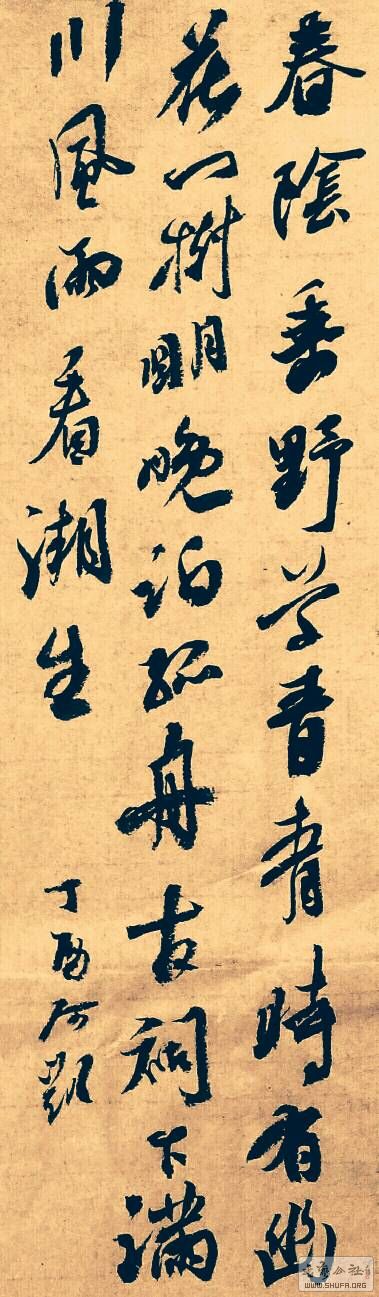 春陰垂野草青青時有幽
花一樹明晚泊孤舟古祠下滿
川風雨看潮生
丁酉凱
SHUFA.ORG